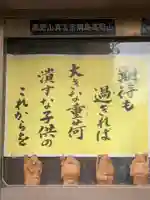 期待も
過ぎれば
大きな重荷
潰すな子供の
これからを